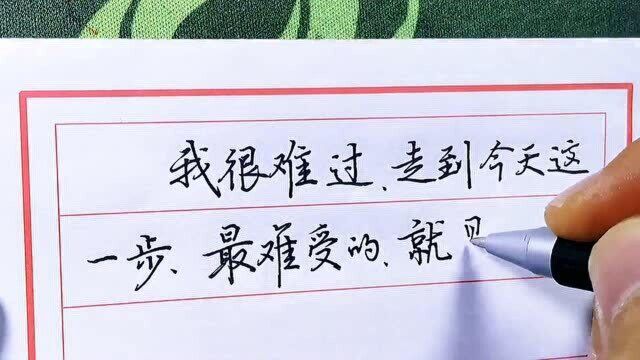 我很难过、走到今天这
一步、最难受的、就